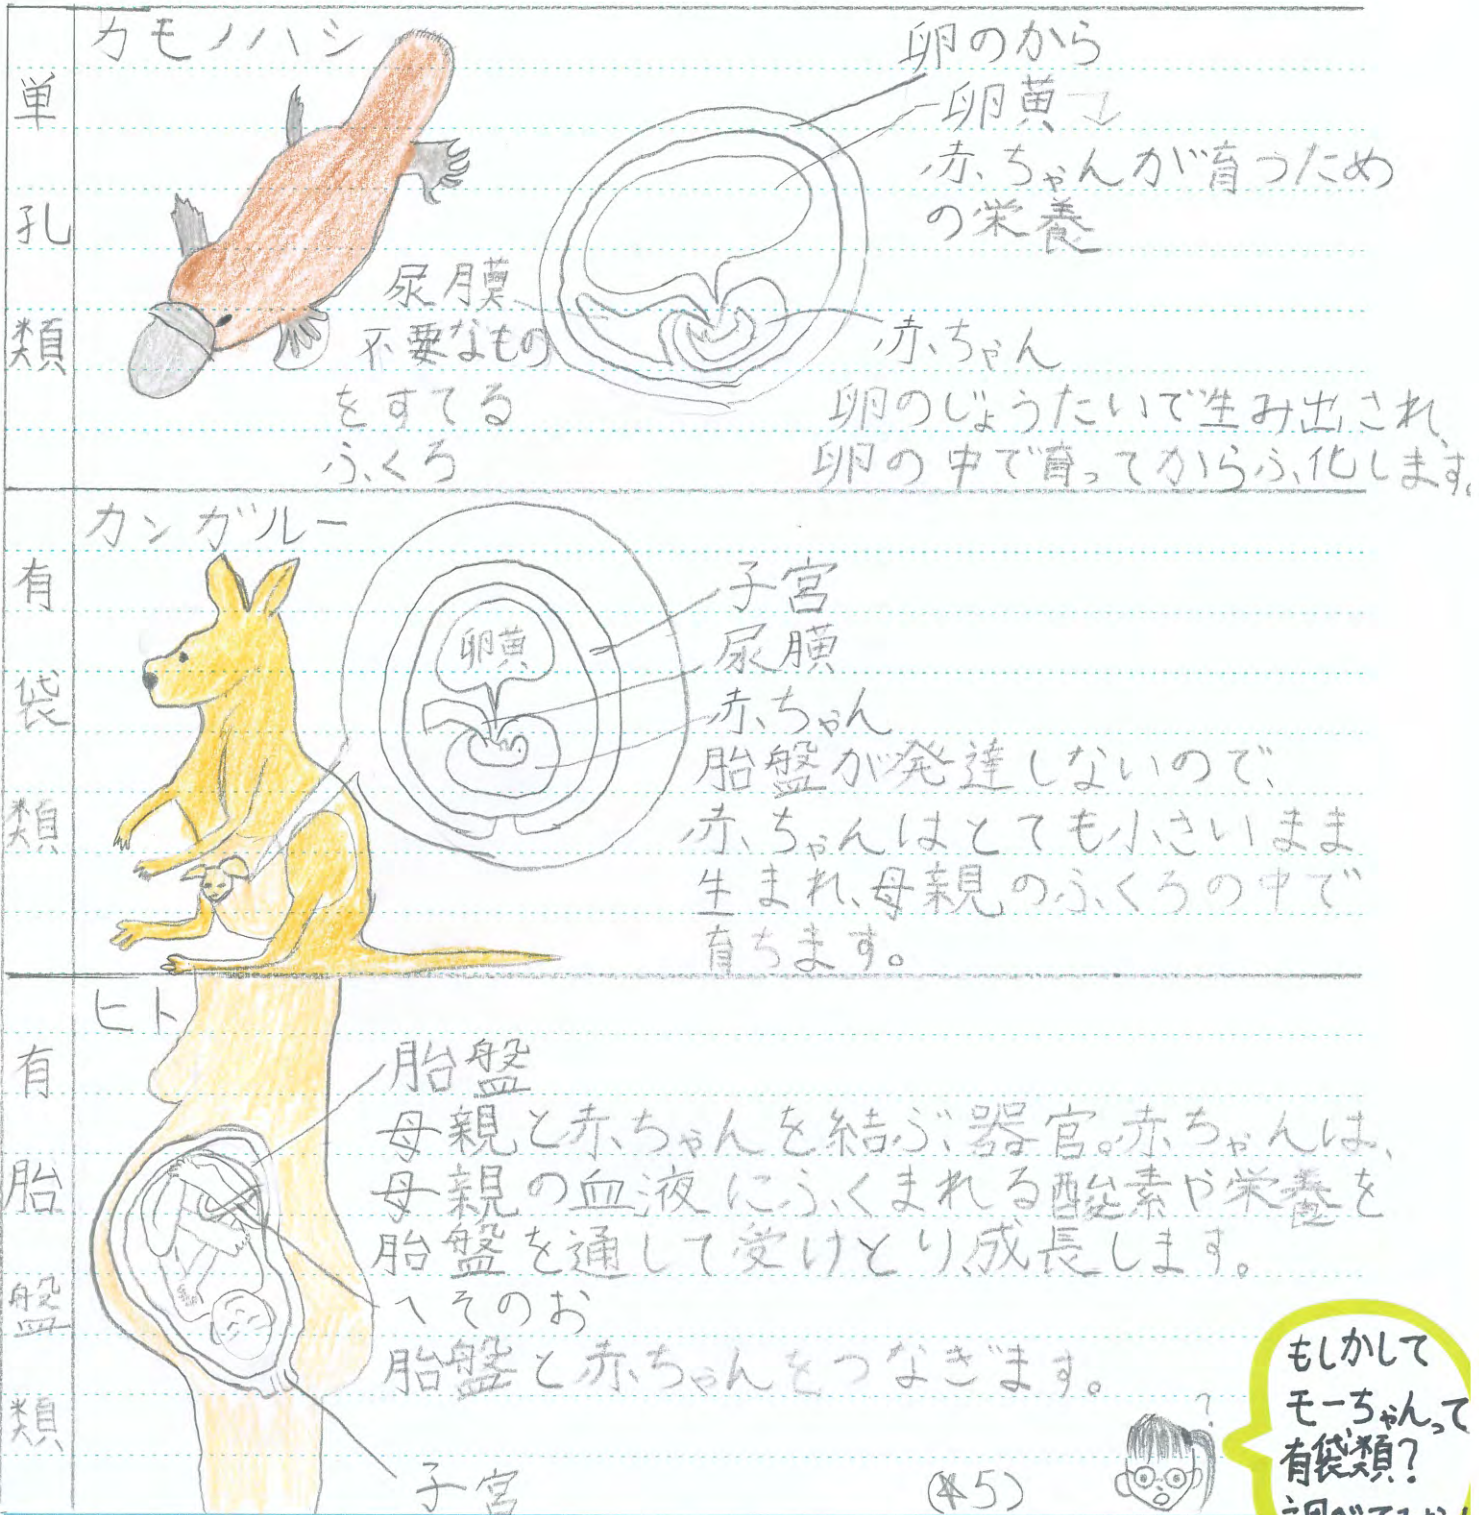 単孔類
カモノハシ
卵のから
卵黄
赤ちゃんが育うため
の栄養
尿膜
不要なもの
をすてる
ふくろ
赤ちゃん
卵のじょうたいで生み出され、
卵の中で育ってからふ化します。
有袋類
カンガルー
卵黄
子宮
尿膜
赤ちゃん
胎盤が発達しないので、
赤ちゃんはとても小さいまま
生まれ、母親のふくろの中で
育ちます。
有胎盤類
ヒト
胎盤
母親と赤ちゃんを結ぶ器官。赤ちゃんは、
母親の血液にふくまれる酸素や栄養を
胎盤を通して受けとり、成長します。
へそのお
胎盤と赤ちゃんをつなぎます。
子宮
(*5)
?
もしかして
モーちゃんって
有袋類?